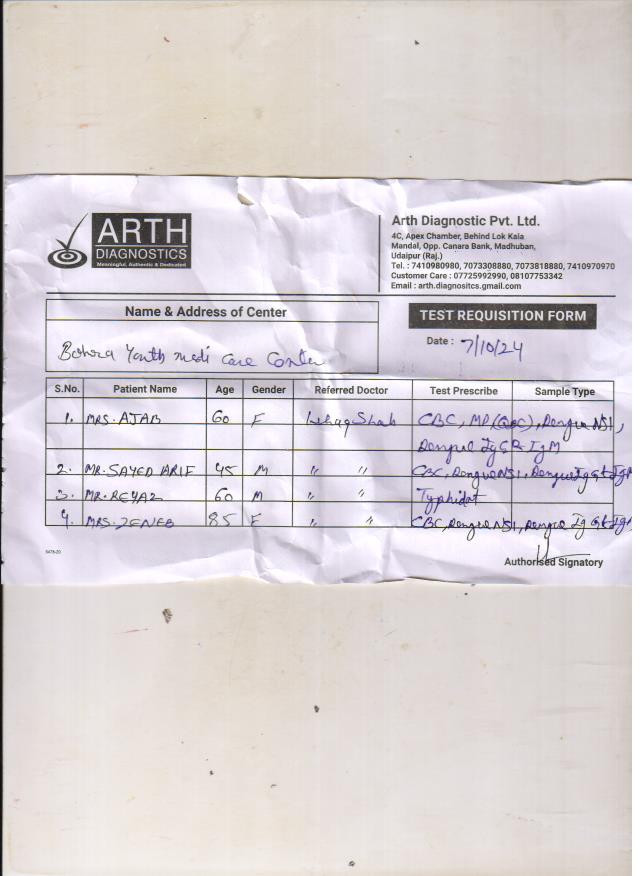 ARTH
DIAGNOSTICS
Meaningful, Authentic & Dedicated
Arth Diagnostic Pvt. Ltd.
4C, Apex Chamber, Behind Lok Kala
Mandal, Opp. Canara Bank, Madhuban,
Udaipur (Raj.)
Tel. : 7410980980, 7073308880, 7073818880, 7410970970
Customer Care : 07725992990, 08107753342
Email : arth.diagnositcs.gmail.com
Name & Address of Center
TEST REQUISITION FORM
Bohra Youth Medi Care Center
Date : 7/10/24
S.No. Patient Name Age Gender Referred Doctor Test Prescribe Sample Type
1. MRS. AJAB 60 F CBC, MP (QBC), Dengue NS1,
Dengue IgG & IgM
2. MR. SAYED ARIF 45 M " " CBC, Dengue NS1, Dengue IgG & IgM
3. MR. REYAZ 60 M " " Typhidot
4. MRS. ZENEB 85 F " " CBC, Dengue NS1, Dengue IgG & IgM
Authorised Signatory